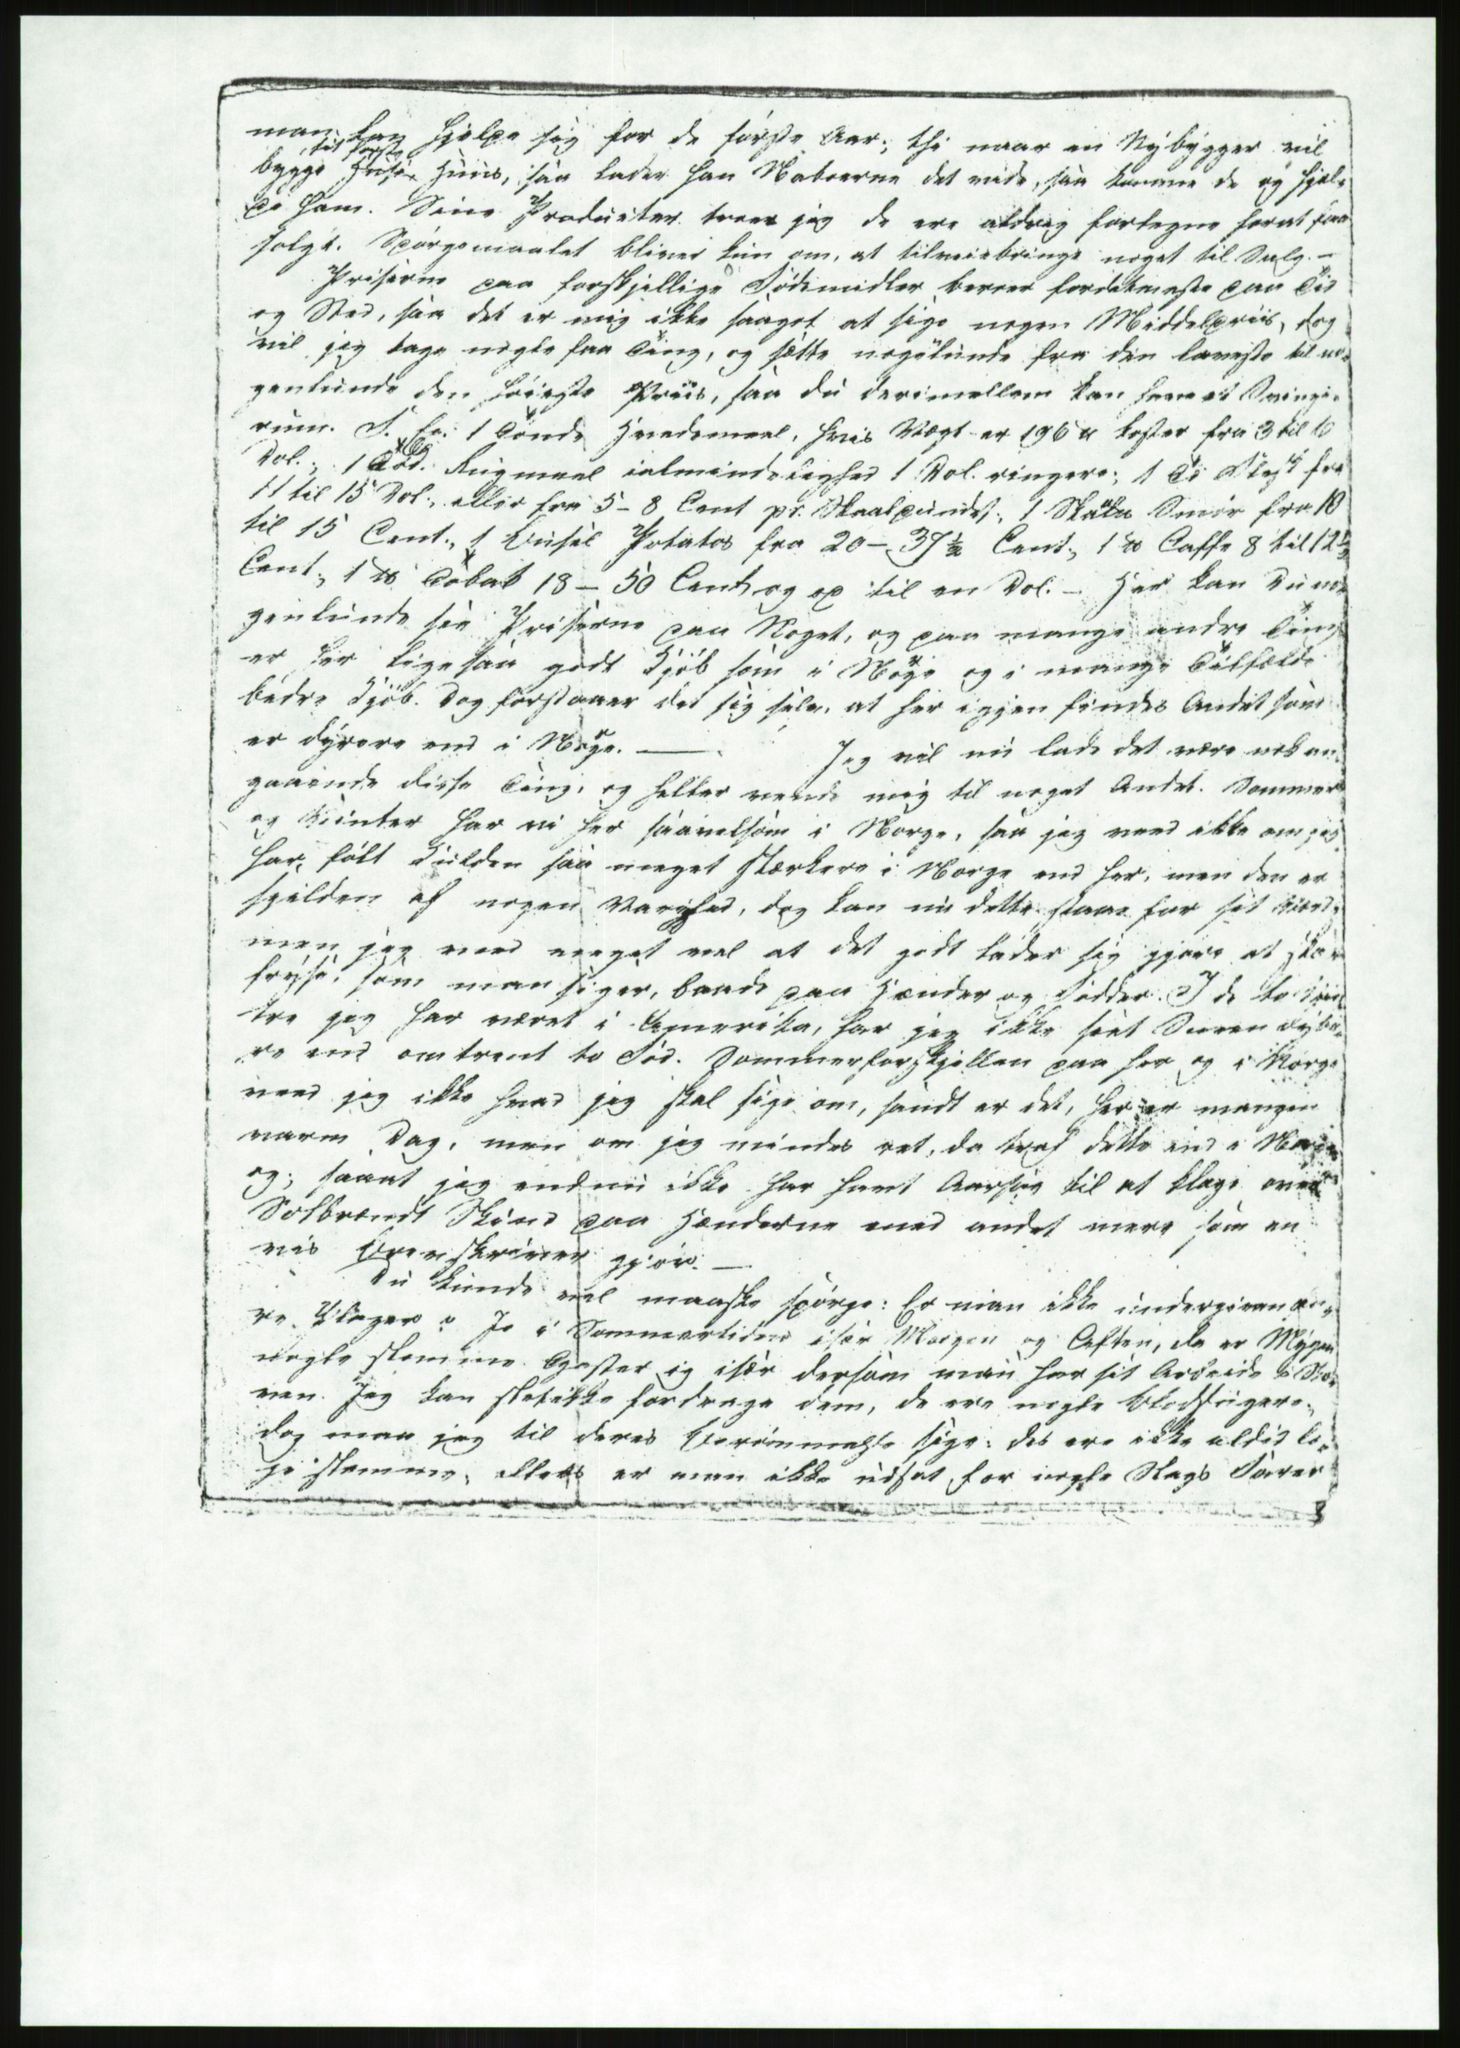 man kan hjelpe sig for de første Aar; thi naar en Nybygger vil
bygge til første Huus, saa lader han Naboerne det vide, saa komme de og hjel-
pe ham. Sine Producter troer jeg de ere aldrig forlegne forat faa
solgt. Spørgsmaalet bliver kun om, at tilveiebringe noget til Salg. —
Priserne paa forskjellige Fødemidler beroer fordetmeste paa Tid
og Sted, saa det er mig ikke saagot at sige nogen Middelpriis, dog
vil jeg tage nogle faa Ting, og sætte nogelunde fra den laveste til no-
genlunde den høieste Priis, saa du derimellem kan have et Svinge-
rum. F. Ex. 1 Tønde Hvedemeel, hvis Vægt er 196 ℔ koster fra 3 til 10
Dol., 1 Tød. Rugmeel ialmindelighed 1 Dol. ringere; 1 Tø Flesk fra
11 til 15 Dol., eller fra 5 – 8 Cent pr. Skaalpundet; 1 Smør fra 10
til 15 Cent., 1 Busel Potatos fra 20 – 37½ Cent., 1 ℔ Caffe 8 til 12½
Cent., 1 ℔ Tobak 18 – 50 Cent og op til en Dol. – Her kan Du no-
genlunde see Priserne paa Noget, og paa mange andre Ting
er her ligesaa godt Kjøb som i Noge og i mange Tilfælde
bedre Kjøb. Dog forstaaer det sig selv, at her igjen findes Andet som
er dyrere end i Noge. — Jeg vil nu lade det være nok an-
gaaende disse Ting, og heller vende mig til noget Andet. Sommer
og Vinter har vi her saavelsom i Norge, saa jeg veed ikke om jeg
har følt Kulden saa meget stærkere i Norge end her, men den er
sjelden af nogen Varighed, dog kan nu dette staae for sit Værd,
men jeg veed meget vel at det godt lader sig gjøre at
fryse, som man siger, baade paa Hænder og Fødder. I de to Vin-
tre jeg har været i Amerika, har jeg ikke seet Sneen dybe-
re end omtrent to Fod. Sommerforskjellen paa her og i Norge
veed jeg ikke hvad jeg skal sige om, sandt er det, her er mangen
varm Dag, men om jeg mindes ret, da traf dette ind i Norge
og; saaat jeg endnu ikke har havt Aarsag til at klage over
Solbrændt Skind paa Hænderne med andet mere som en
vis Brevskriver gjør. —
Du kunde vel maaske spørge: Er man ikke undergiven an-
re Plager? Jo i Sommertiden især Morgen og Aften, da er Mygen
nogle slemme Gjester og især dersom man har sit Arbeide i Sko-
ven. Jeg kan sletikke fordrage dem, de ere nogle Blodsugere;
dog maa jeg til deres Berømmelse sige: des ere ikke altid li-
ge slemme; ellers er man ikke udsat for nogle Slags Farer
3